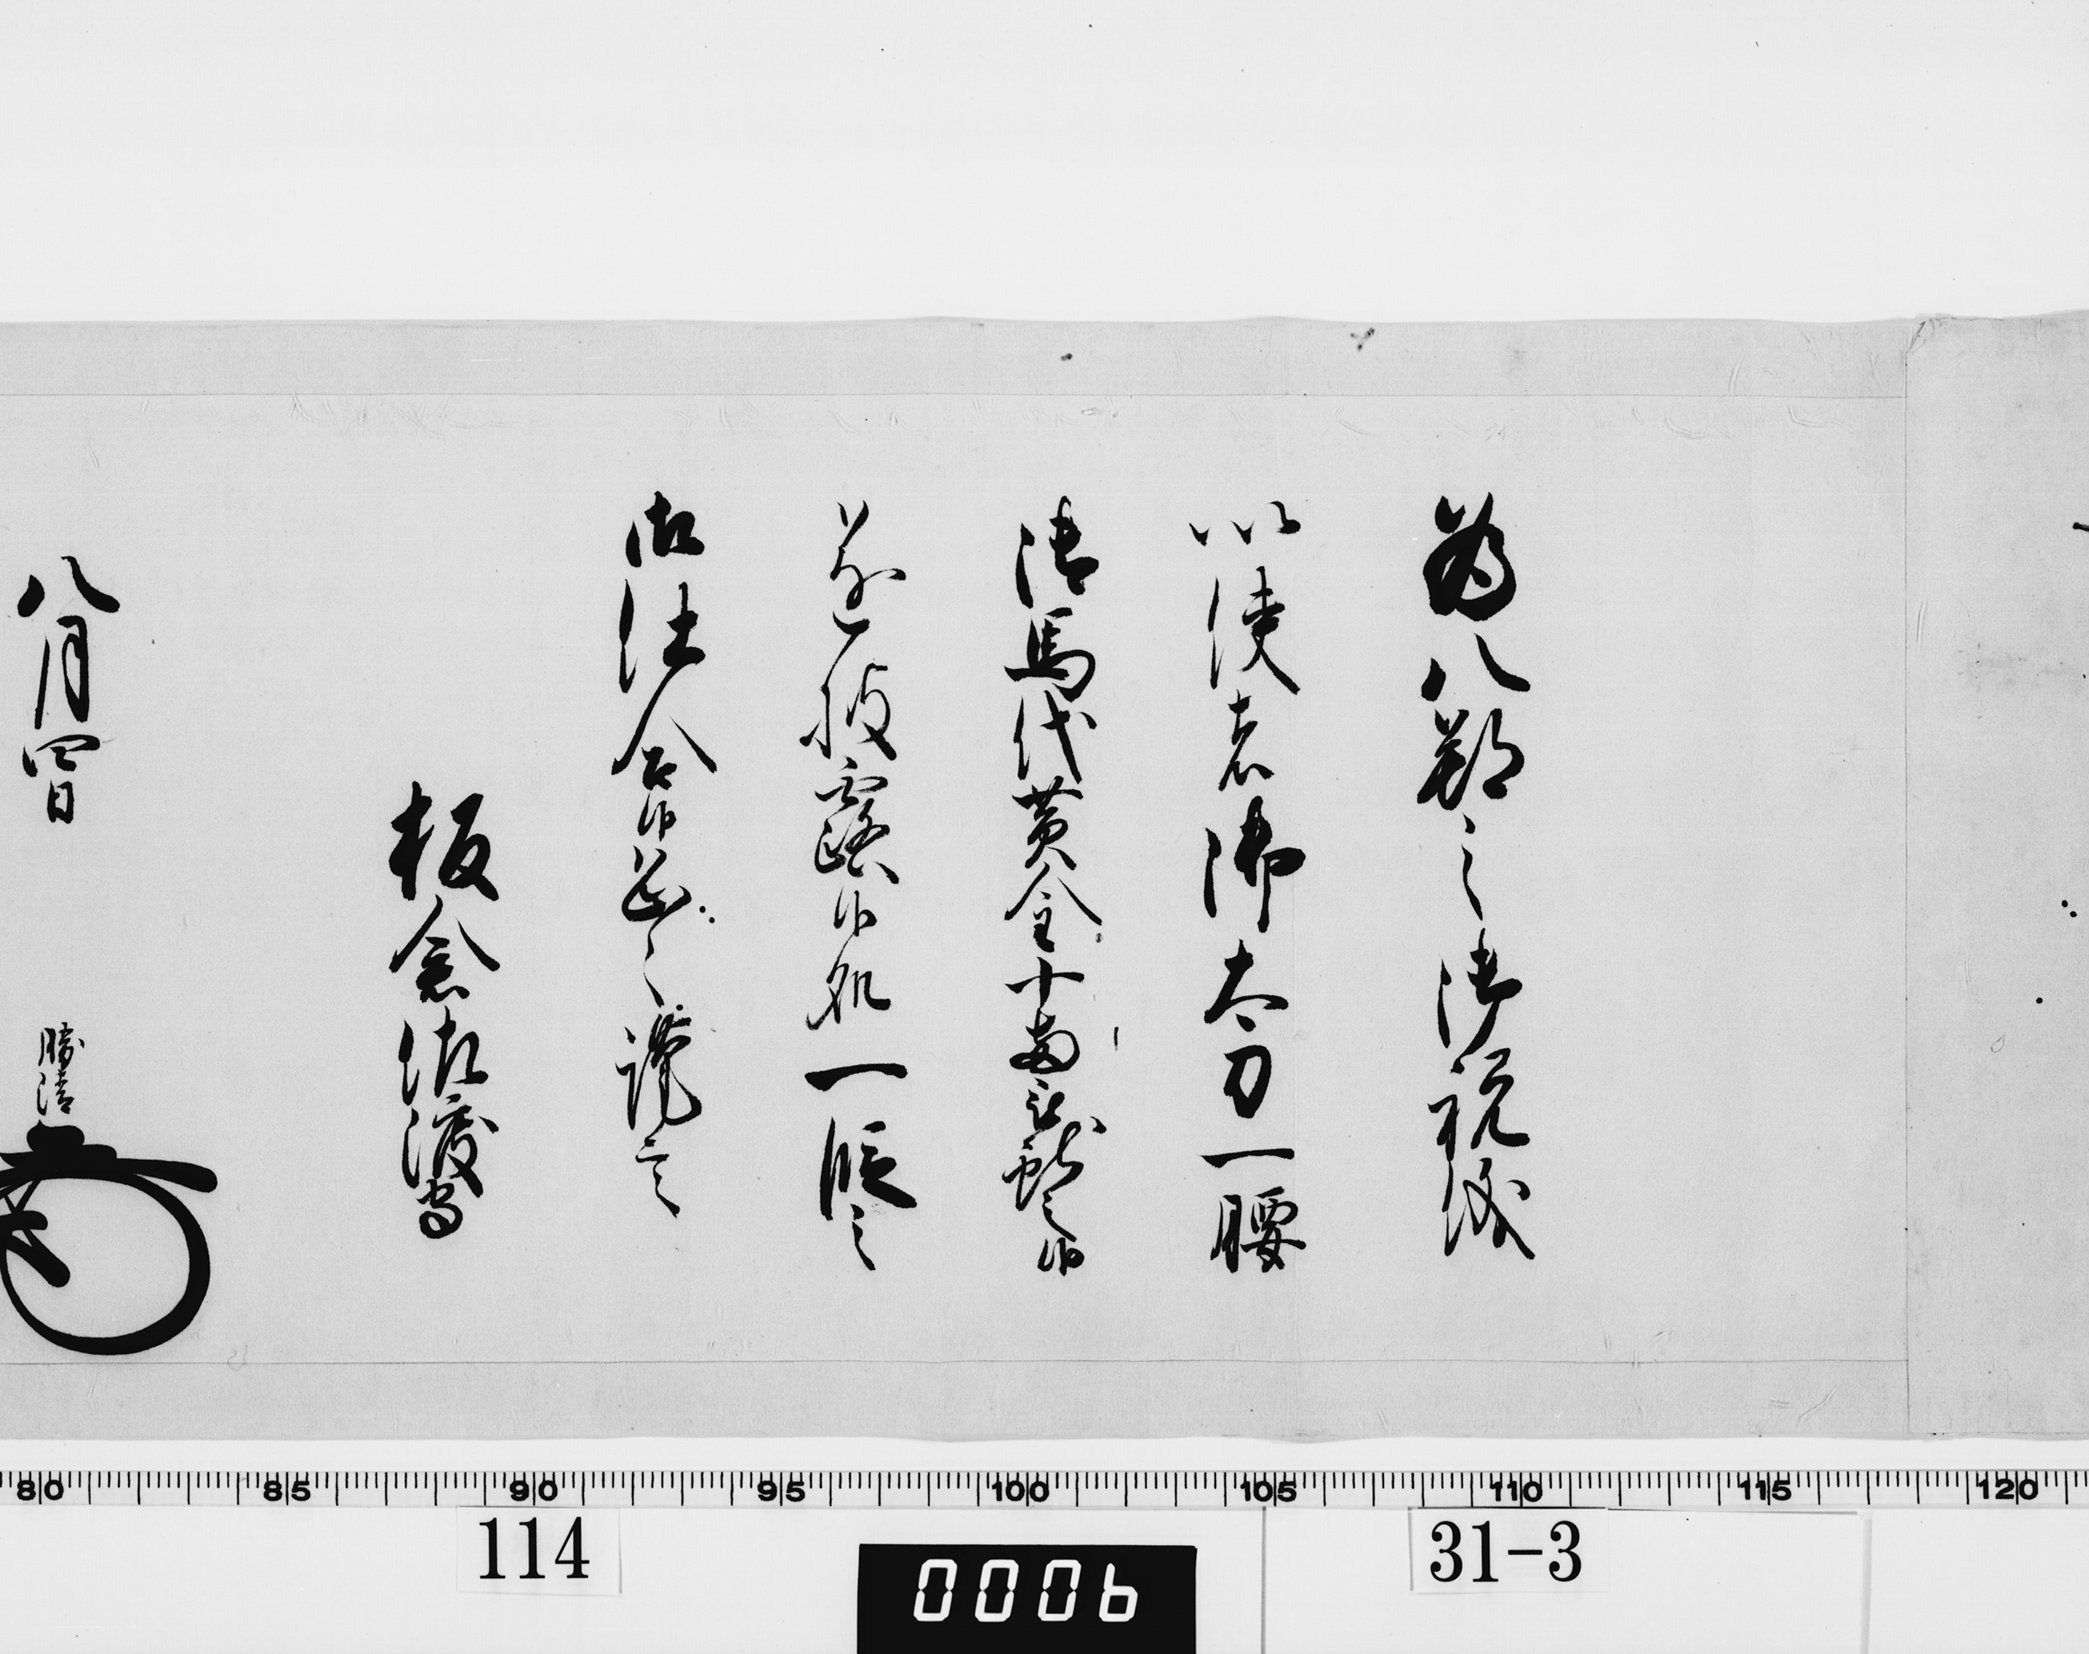 為八朔之御祝儀
以使者御太刀一腰
御馬代黄金十両被献之候
遂披露候処一段之
御仕合候恐々謹言
板倉佐渡守
八月四日
勝清
80 85 90 95 100 105 110 115 120
114
0006
31-3